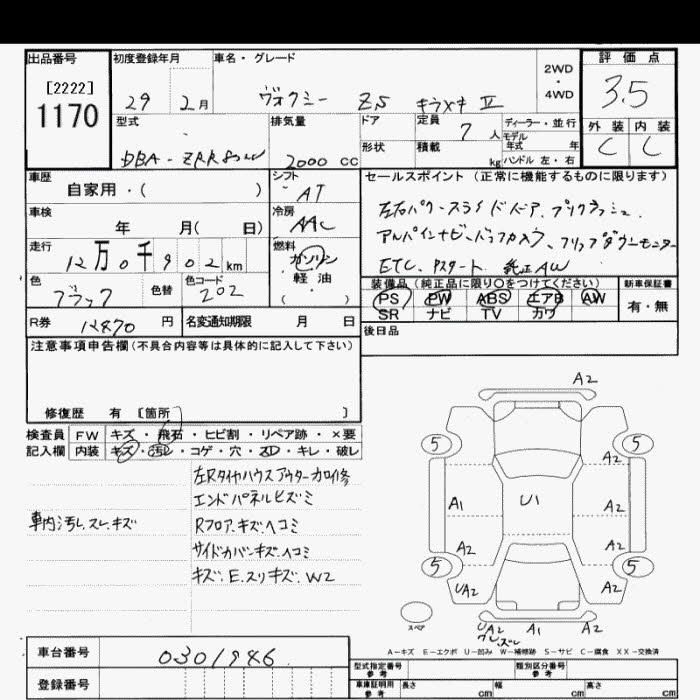 出品番号 初度登録年月 車名・グレード 2WD・4WD 評価点
[2222]
1170
29 2月 ヴォクシー ZS キラメキ II 3.5
型式 排気量 ドア 定員 7人 ディーラー・並行 外装 内装
形状 積載 kg モデル年式 年 ハンドル 左・右 C C
DBA-ZRR80W 2000 CC
車歴 シフト セールスポイント (正常に機能するものに限ります)
自家用・( ) AT
左右パワースライドドア、プリクラッシュ、
車検 年 月( 日) 冷房 AAC
アルパインナビ・バックカメラ、フリップダウンモニター
走行 12万0千902km 燃料 ガソリン 軽油 ( )
ETC、Pスタート 純正AW
色 ブラック 色替 色コード 202
装備品 (純正品に限り○をつけてください) 新車保証書
PS PW ABS エアB AW 有・無
SR ナビ TV カワ
R券 12870円 名変通知期限 月 日
後日品
注意事項申告欄(不具合内容等は具体的に記入して下さい)
修復歴 有 [箇所 ]
検査員 FW キズ・飛石・ヒビ割・リペア跡・×要
記入欄 内装 キズ・汚レ・コゲ・穴・スレ・キレ・破レ
左Rタイヤハウスアウターカロイ修
エンドパネルヒズミ
車内汚レ、スレ、キズ
Rフロア、キズ、ヘコミ
サイドカバンキズ、ヘコミ
キズ、E、スリキズ、W2
A2
5 5
A2
A1 U1 A2
A2 A2
5 5
UA2 A2
スペア
UA2 A1 A2
A-キズ E-エクボ U-凹み W-補修跡 S-サビ C-腐食 XX-交換済
車台番号 0301946
型式指定番号 参考 類別区分番号 参考
登録番号
車庫証明用 参考 長さ cm 幅 cm 高さ cm